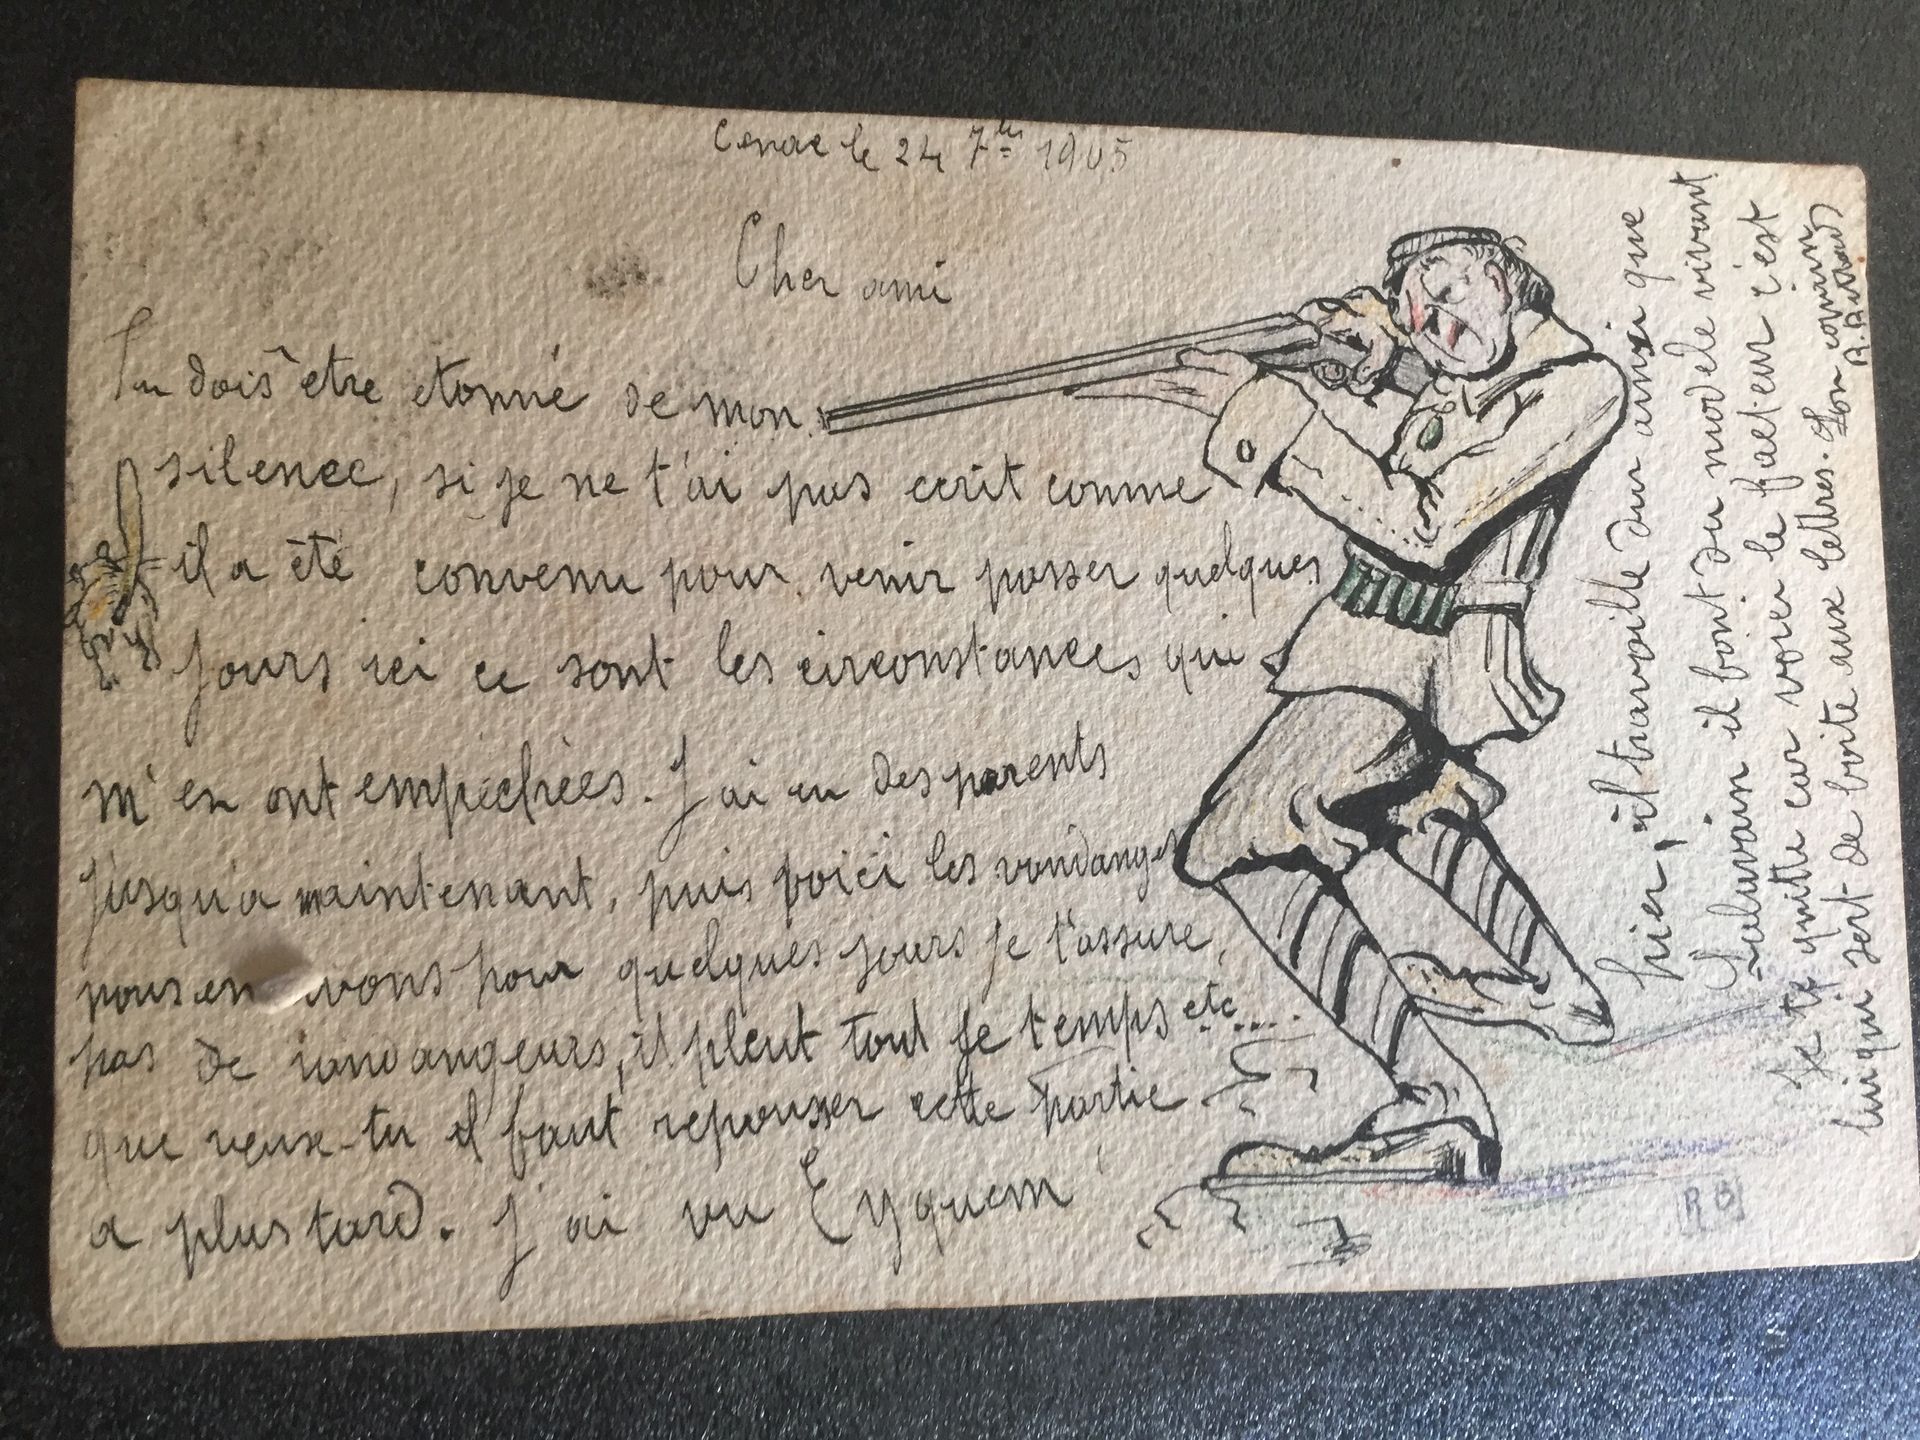 Cenac le 24 7bre 1905
Cher ami
Tu dois être etonné de mon
silence, si je ne t'ai pas ecrit comme
il a été convenu pour venir passer quelques
jours ici ce sont les circonstances qui
m'en ont empéchées. J'ai eu des parents
jusqu'a maintenant, puis voici les vendanges
nous en avons pour quelques jours je t'assure,
pas de vendangeurs, il pleut tout le temps etc....
que veux-tu il faut repousser cette partie
a plus tard. J'ai vu Eyquem
hier, il travaille dur ainsi que
Salavain il font du modele vivant
Je te quitte car voici le facteur c'est
lui qui sert de boite aux lettres. Ton copain
R.
RB